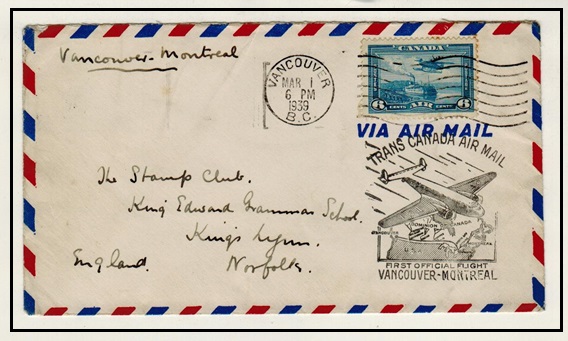 Vancouver-Montreal
VANCOUVER
MAR 1
6 PM
1939
B.C.
CANADA
6 CENTS AIR CENTS 6
VIA AIR MAIL
TRANS CANADA AIR MAIL
The Stamp Club.
King Edward Grammar School.
Kings Lynn.
England. Norfolk.
DOMINION OF CANADA
U.S.A.
FIRST OFFICIAL FLIGHT
VANCOUVER-MONTREAL